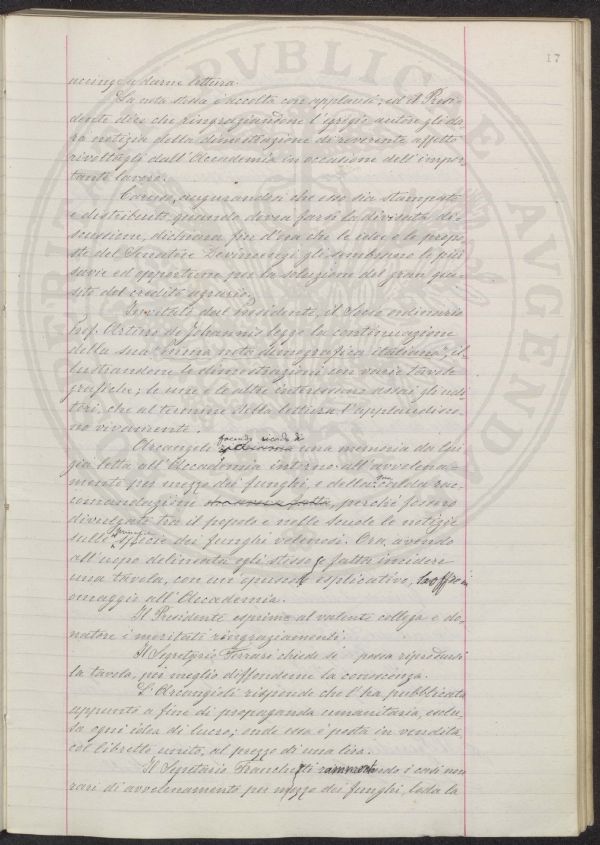 17
accinge a darne lettura.
La nota stessa è accolta con applausi ed il Presi-
dente dice che ringraziandone l'egregio autore gli da
rà notizia della dimostrazione di reverente affetto
rivoltagli dall'Accademia in occasione dell'impor
tante lavoro.
Caruso, augurandosi che esso sia stampato
e distribuito quando dovrà farsi la dovuta di-
scussione, dichiara fin d'ora che le idee e le propo
ste del Senatore Devincenzi gli sembrano le più
savie ed opportune per la soluzione del gran que
sito del credito agrario.
Invitato dal presidente, il Socio ordinario
Prof. Arturo de Johannis legge la continuazione
della sua "Prima nota demografica italiana", il-
lustrandone le dimostrazioni con varie tavole
grafiche; le une e le altre interessano assai gli udi
tori, che al termine della lettura l'applaudisco-
no vivamente.
facendo ricordo di
Arcangeli una memoria da lui
già letta all'Accademia intorno all'avvelena-
mento per mezzo dei funghi, e della calda rac-
comandazione che aveva fatta, perché fossero
divulgate tra il popolo e nelle scuole le notizie
principali
sulle specie dei funghi velenosi. Ora, avendo
all'uopo delineata egli stesso e fatta incidere
una tavola, con un opuscolo esplicativo, la offre in
omaggio all'Accademia.
Il Presidente esprime al valente collega e do-
natore i meritati ringraziamenti.
Il Segretario Ferrari chiede se possa riprodursi
la tavola, per meglio diffonderne la conoscenza.
L'Arcangeli risponde che l'ha pubblicata
appunto a fine di propaganda umanitaria, esclu
sa ogni idea di lucro; onde essa è posta in vendita,
col libretto unito, al prezzo di una lira.
Il Segretario Franchetti rammentando i casi non
rari di avvelenamento per mezzo dei funghi, loda la